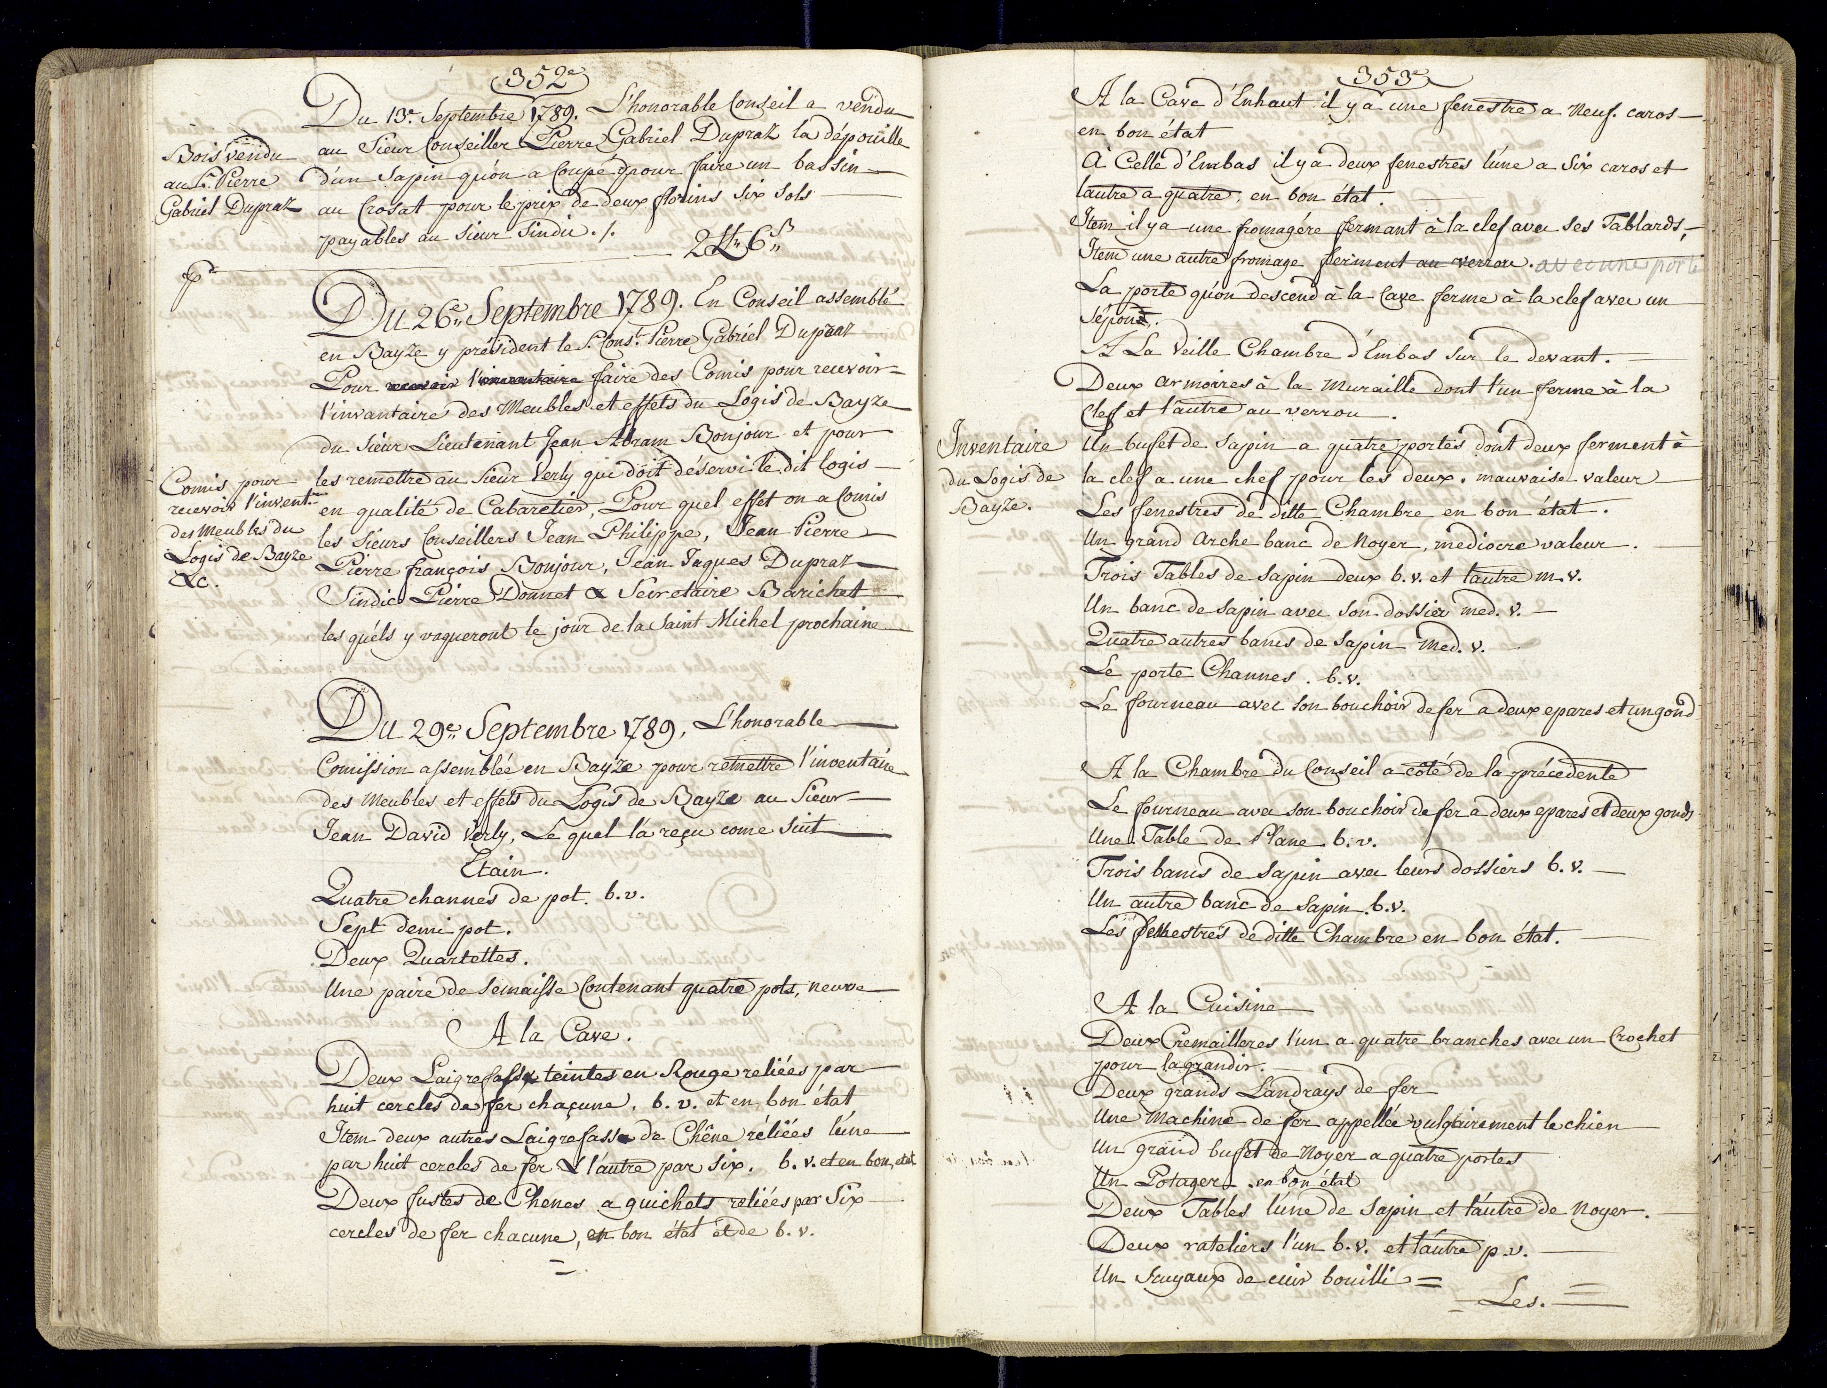 352e
Du 13e. Septembre 1789. L'honorable Conseil a vendu
au Sieur Conseiller Pierre Gabriel Dupraz la dépouïlle
d'un Sapin qu'on a Coupé pour faire un bassin
au Crosat pour le prix de deux florins six sols
payables au Sieur Sindic ./.
Bois vendu
au Sr. Pierre
Gabriel Dupraz
Du 26e. Septembre 1789. En Conseil assemblé
en Bayze y président le Sr. Const. Pierre Gabriel Dupraz
Pour recevoir l'inventaire faire des Comis pour recevoir
l'invantaire des Meubles et effets du Logis de Bayze
du Sieur Lieutenant Jean Abram Bonjour et pour
les remettre au Sieur Verly qui doit déservi le dit logis
en qualité de Cabaretier, Pour quel effet on a Comis
les Sieurs Conseillers Jean Philippe, Jean Pierre
Pierre françois Bonjour, Jean Jaques Dupraz
Sindic Pierre Donnet & Secretaire Barichet
les quéls y vaqueront le jour de la Saint Michel prochaine
Comis pour
recevoir l'invent.re
des Meubles du
Logis de Bayze
&c.
Du 29e. Septembre 1789, L'honorable
Comission assemblée en Bayze pour remettre l'inventaire
des Meubles et effets du Logis de Bayze au Sieur
Jean David Verly, Le quel l'a reçu come Suit
Etain.
Quatre channes de pot. b.v.
Sept demi pot.
Deux Quartettes.
Une paire de semaisse Contenant quatre pots, neuve
A la Cave.
Deux Laigrefass teintes en Rouge reliées par
huit cercles de fer chaçune, b. v. et en bon état
Item deux autres Laigrefass de Chêne réliées l'une
par huit cercles de fer & l'autre par six. b. v. et en bon etat
Deux fustes de Chenes a guichets reliées par Six
cercles de fer chacune, en bon état et de b. v.
353e
A la Cave d'Enhaut il y a une fenestre a Neuf caros
en bon état
A Celle d'Embas il y a deux fenestres l'une a Six caros et
l'autre a quatre, en bon état.
Item il y a une fromagére fermant à la clef avec ses Tablards,
Item une autre fromage ferment au verrou. avec une porte
La porte qu'on descend à la Cave ferme à la clef avec un
A La Veille Chambre d'Embas Sur le devant.
Deux armoires à la Muraille dont l'un ferme à la
Clef et l'autre au verrou.
Inventaire
du Logis de
Bayze.
Un bufet de Sapin a quatre portes dont deux ferment à
la clef a une chef pour les deux. mauvaise valeur
Les fenestres de ditte Chambre en bon état.
Un grand Arche banc de Noyer, mediocre valeur.
Trois Tables de Sapin deux b.v. et l'autre m.v.
Un banc de Sapin avec son dossier med. v.
Quatre autres bancs de Sapin Med. v.
Le porte Channes. b.v.
Le fourneau avec son bouchoir de fer a deux epares et un gond
A la Chambre du Conseil a côté de la précedente
Le fourneau avec son bouchoir de fer a deux epares et deux gonds
Une Table de Plane b.v.
Trois bancs de Sapin avec leurs dossiers b.v.
Un autre banc de Sapin b.v.
Les fenestres de ditte Chambre en bon état.
A la Cuisine
Deux Cremailleres l'un a quatre branches avec un Crochet
pour lagrandir.
Deux grands Landrays de fer
Une Machine de fer appellée vulgairement le chien
Un grand bufet de Noyer a quatre portes
Un Potager en bon état
Deux Tables l'une de Sapin et l'autre de Noyer.
Deux rateliers l'un b.v. et l'autre p.v.
Un de cuir bouilli =
Les.